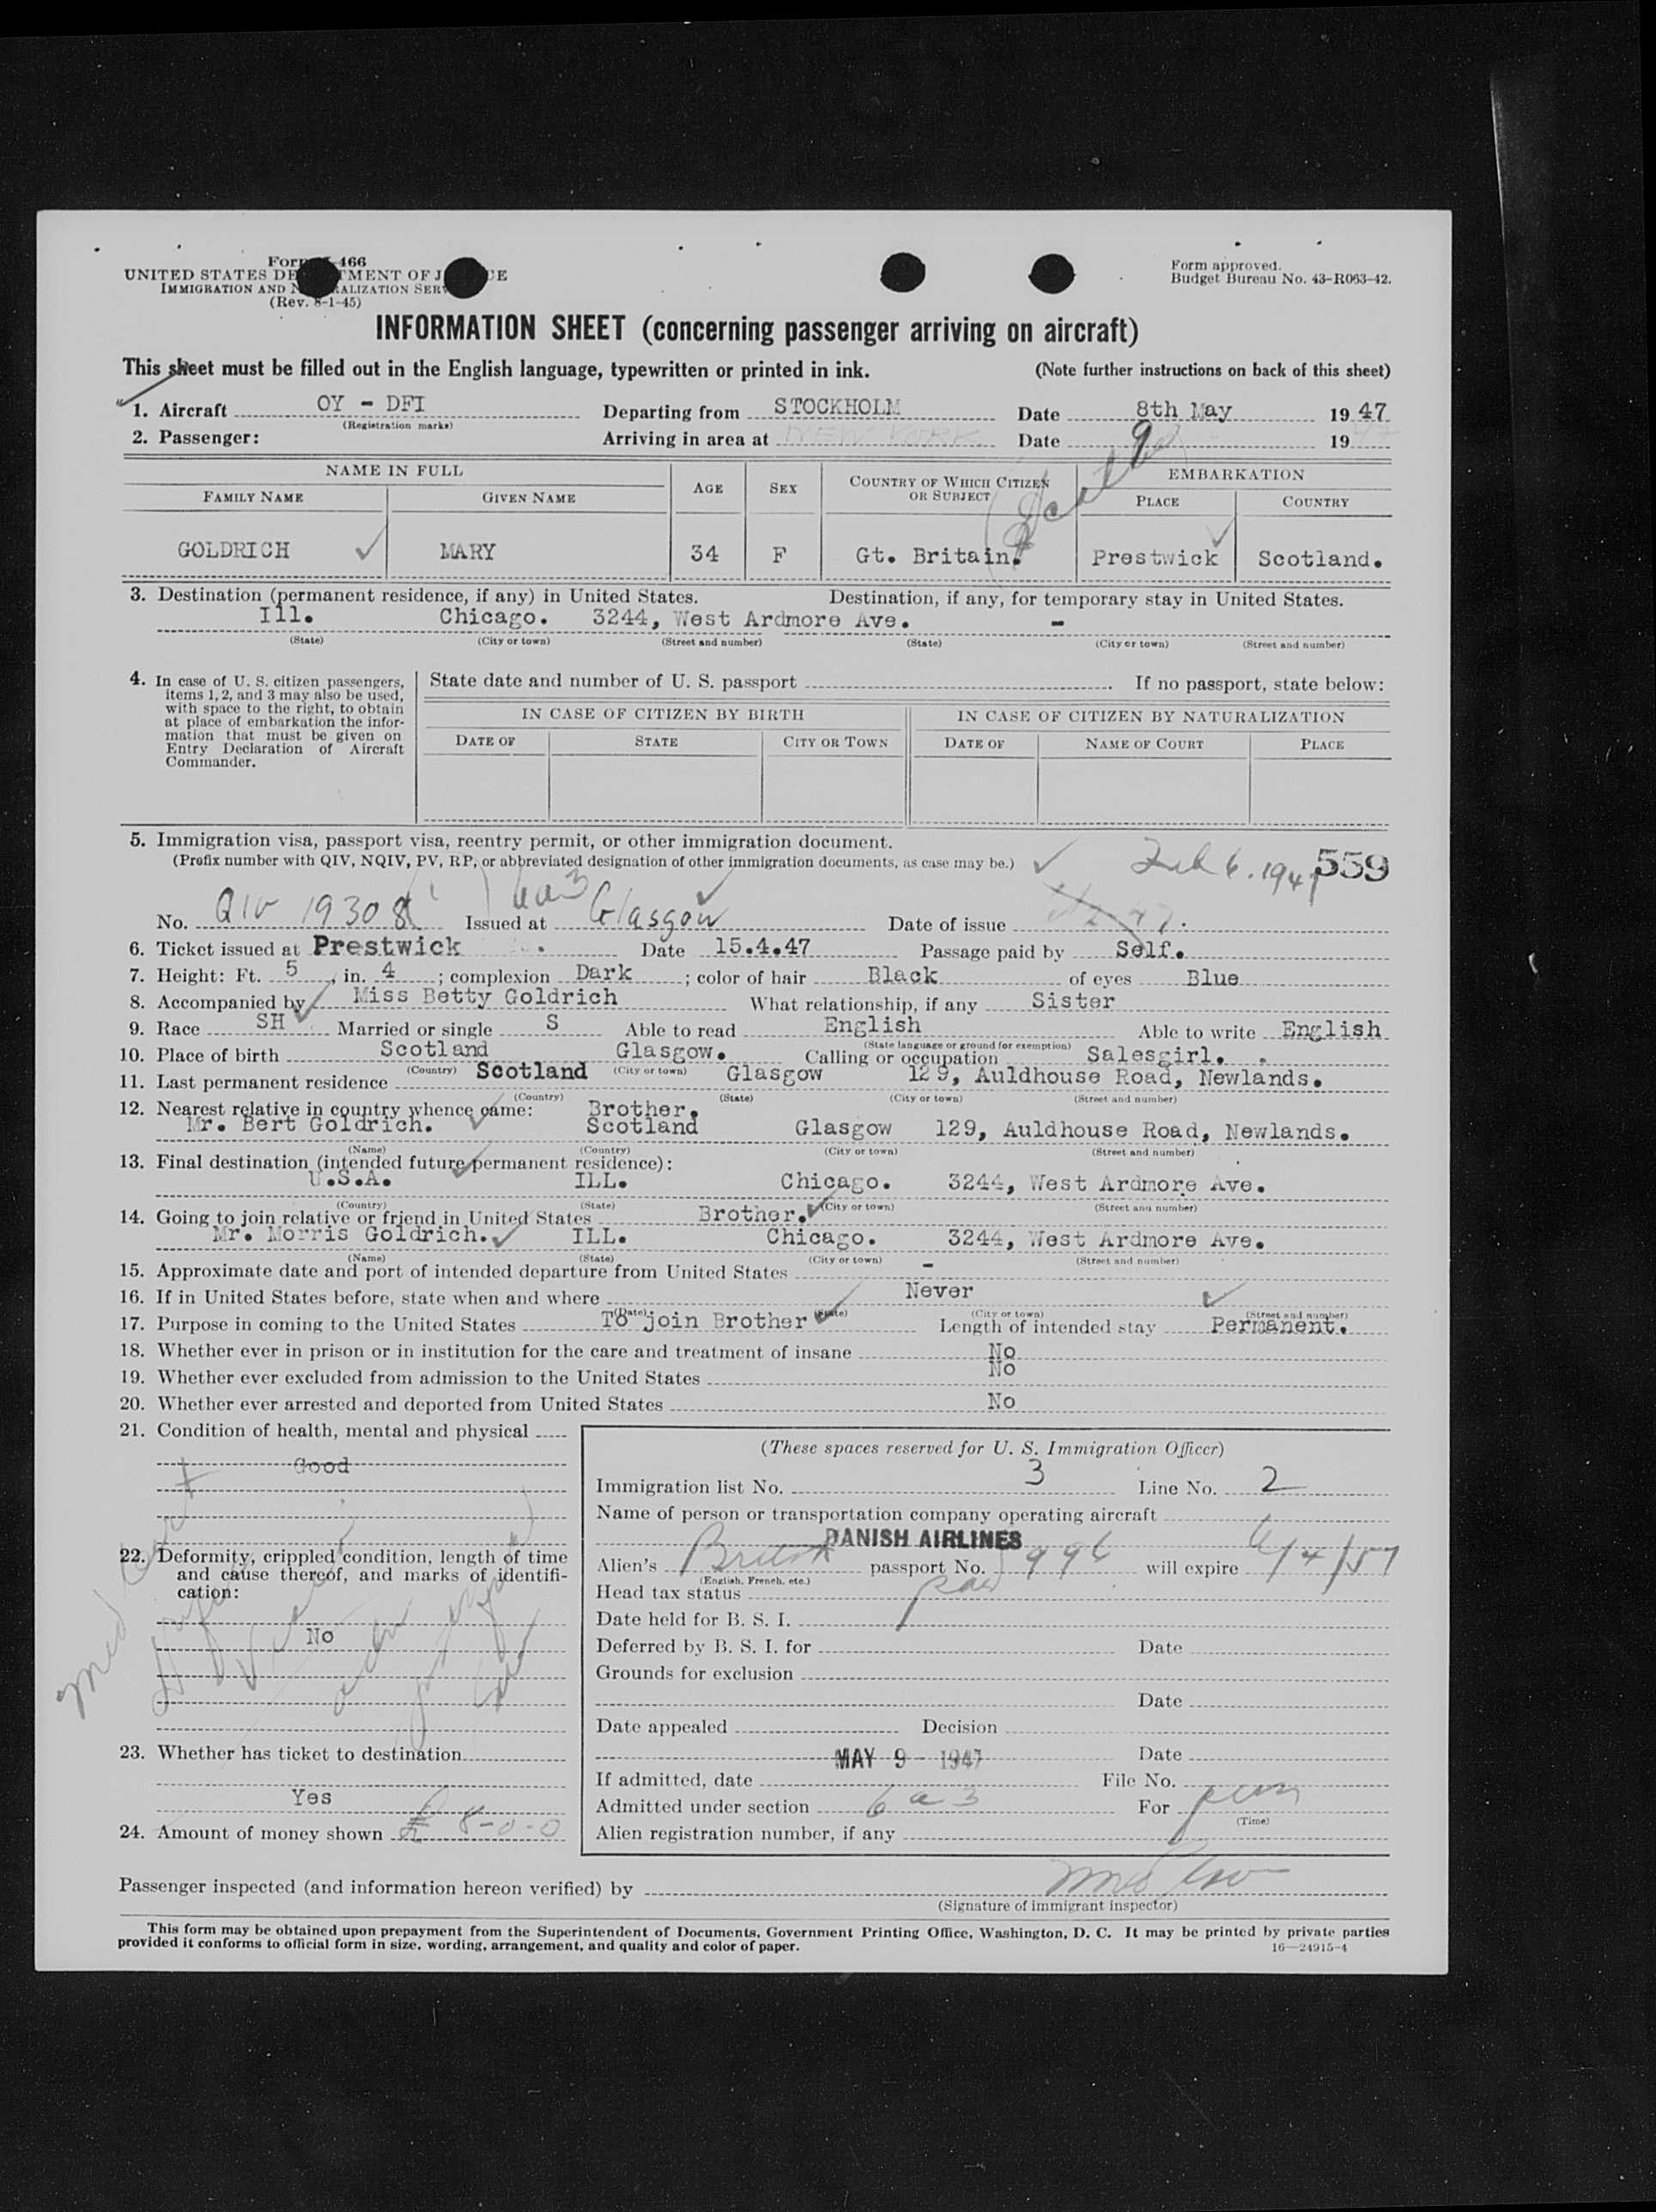 Form I-466
UNITED STATES DEPARTMENT OF JUSTICE
IMMIGRATION AND NATURALIZATION SERVICE
(Rev. 8-1-45)
Form approved.
Budget Bureau No. 43-R063-42.
INFORMATION SHEET (concerning passenger arriving on aircraft)
This sheet must be filled out in the English language, typewritten or printed in ink. (Note further instructions on back of this sheet)
1. Aircraft OY - DFI Departing from STOCKHOLM Date 8th May 1947
(Registration marks)
2. Passenger: Arriving in area at NEW YORK Date 9 1947
NAME IN FULL AGE SEX COUNTRY OF WHICH CITIZEN OR SUBJECT EMBARKATION
FAMILY NAME GIVEN NAME PLACE COUNTRY
GOLDRICH MARY 34 F Gt. Britain. Prestwick Scotland.
3. Destination (permanent residence, if any) in United States. Destination, if any, for temporary stay in United States.
Ill. Chicago. 3244, West Ardmore Ave. -
(State) (City or town) (Street and number) (State) (City or town) (Street and number)
4. In case of U. S. citizen passengers, items 1, 2, and 3 may also be used, with space to the right, to obtain at place of embarkation the information that must be given on Entry Declaration of Aircraft Commander.
State date and number of U. S. passport If no passport, state below:
IN CASE OF CITIZEN BY BIRTH IN CASE OF CITIZEN BY NATURALIZATION
DATE OF STATE CITY OR TOWN DATE OF NAME OF COURT PLACE
5. Immigration visa, passport visa, reentry permit, or other immigration document.
(Prefix number with QIV, NQIV, PV, RP, or abbreviated designation of other immigration documents, as case may be.)
Feb 6. 1947 559
6a3
No. QIV 19308 Issued at Glasgow Date of issue
6. Ticket issued at Prestwick Date 15.4.47 Passage paid by Self.
7. Height: Ft. 5, in. 4; complexion Dark; color of hair Black of eyes Blue
8. Accompanied by Miss Betty Goldrich What relationship, if any Sister
9. Race SH Married or single S Able to read English Able to write English
(State language or ground for exemption)
10. Place of birth Scotland Glasgow. Calling or occupation Salesgirl.
(Country) (City or town)
11. Last permanent residence Scotland Glasgow 129, Auldhouse Road, Newlands.
(Country) (State) (City or town) (Street and number)
12. Nearest relative in country whence came: Brother.
Mr. Bert Goldrich. Scotland Glasgow 129, Auldhouse Road, Newlands.
(Name) (Country) (City or town) (Street and number)
13. Final destination (intended future permanent residence):
U.S.A. ILL. Chicago. 3244, West Ardmore Ave.
(Country) (State) (City or town) (Street and number)
14. Going to join relative or friend in United States Brother.
Mr. Morris Goldrich. ILL. Chicago. 3244, West Ardmore Ave.
(Name) (State) (City or town) (Street and number)
15. Approximate date and port of intended departure from United States -
16. If in United States before, state when and where Never
(Date) (State) (City or town) (Street and number)
17. Purpose in coming to the United States To join Brother Length of intended stay Permanent.
18. Whether ever in prison or in institution for the care and treatment of insane No
19. Whether ever excluded from admission to the United States No
20. Whether ever arrested and deported from United States No
21. Condition of health, mental and physical
Good
22. Deformity, crippled condition, length of time and cause thereof, and marks of identification:
No
23. Whether has ticket to destination
Yes
24. Amount of money shown £ 8-0-0
(These spaces reserved for U. S. Immigration Officer)
Immigration list No. 3 Line No. 2
Name of person or transportation company operating aircraft
DANISH AIRLINES
Alien's British passport No. 996 will expire
(English, French, etc.)
Head tax status paid
Date held for B. S. I.
Deferred by B. S. I. for Date
Grounds for exclusion
Date
Date appealed Decision
MAY 9 - 1947 Date
If admitted, date File No.
Admitted under section 6a3 For perm
(Time)
Alien registration number, if any
Passenger inspected (and information hereon verified) by
(Signature of immigrant inspector)
This form may be obtained upon prepayment from the Superintendent of Documents, Government Printing Office, Washington, D. C. It may be printed by private parties
provided it conforms to official form in size, wording, arrangement, and quality and color of paper. 16—24915-4